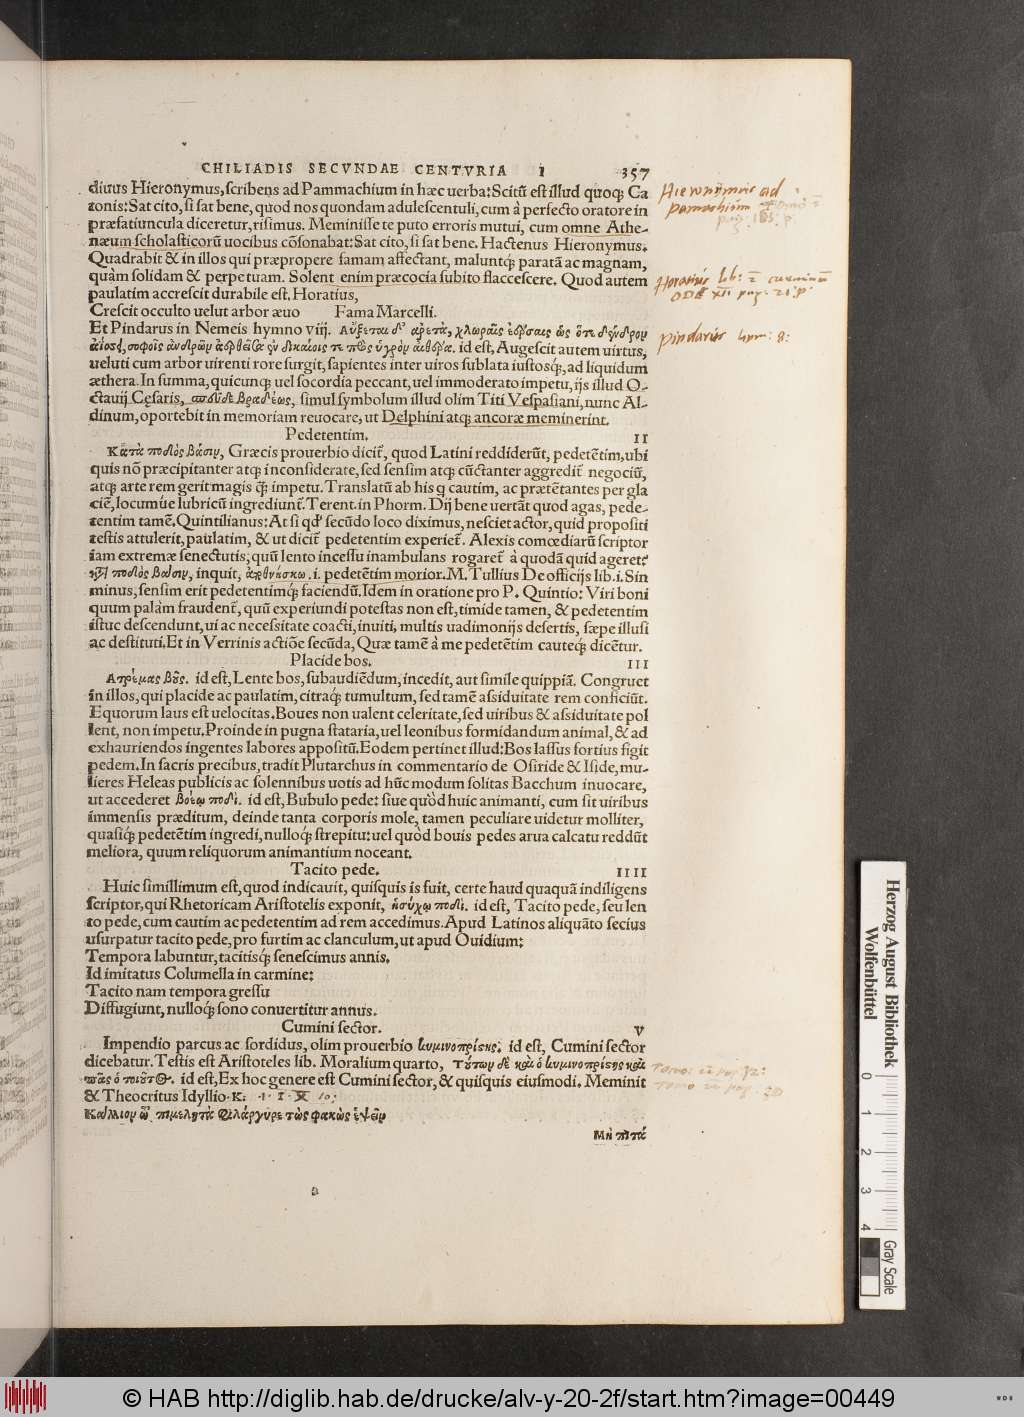 CHILIADIS SECVNDAE CENTVRIA I 357
diuus Hieronymus, scribens ad Pammachium in hæc uerba: Scitũ est illud quoq; Ca
tonis: Sat cito, si sat bene, quod nos quondam adulescentuli, cum à perfecto oratore in
præfatiuncula diceretur, risimus. Meminisse te puto erroris mutui, cum omne Athe-
næum scholasticorũ uocibus cõsonabat: Sat cito, si sat bene. Hactenus Hieronymus.
Quadrabit & in illos qui præpropere famam affectant, maluntq; paratã ac magnam,
quàm solidam & perpetuam. Solent enim præcocia subito flaccescere. Quod autem
paulatim accrescit durabile est, Horatius,
Crescit occulto uelut arbor æuo Fama Marcelli.
Et Pindarus in Nemeis hymno viij. Αὔξεται δ' ἀρετὰ, χλωραῖς ἐέρσαις ὡς ὅτε δένδρον
ἀΐσσει, σοφοῖς ἀνδρῶν ἀερθεῖσα ἐν δικαίοις τε πρὸς ὑγρὸν αἰθέρα. id est, Augescit autem uirtus,
ueluti cum arbor uirenti rore surgit, sapientes inter uiros sublata iustosq;, ad liquidum
æthera. In summa, quicunq; uel socordia peccant, uel immoderato impetu, ijs illud O-
ctauij Cęsaris, σπεῦδε βραδέως, simul symbolum illud olim Titi Vespasiani, nunc Al-
dinum, oportebit in memoriam reuocare, ut Delphini atq; ancoræ meminerint.
Pedetentim. II
Κατὰ ποδὸς βάσιν, Græcis prouerbio dicit̃, quod Latini reddiderũt, pedetẽtim, ubi
quis nõ præcipitanter atq; inconsiderate, sed sensim atq; cũctanter aggredit̃ negociũ,
atq; arte rem gerit magis q̃ impetu. Translatũ ab his q cautim, ac prætẽtantes per gla
ciẽ, locumúe lubricũ ingrediunt̃. Terent. in Phorm. Dij bene uertãt quod agas, pede-
tentim tamẽ. Quintilianus: At si qd' secũdo loco diximus, nesciet actor, quid propositi
testis attulerit, paulatim, & ut dicit̃ pedetentim experiet̃. Alexis comœdiarũ scriptor
iam extremæ senectutis, quũ lento incessu inambulans rogaret̃ à quodã quid ageret:
κατὰ ποδὸς βάσιν, inquit, ἀποθνήσκω. i. pedetẽtim morior. M. Tullius De officijs lib. i. Sin
minus, sensim erit pedetentimq; faciendũ. Idem in oratione pro P. Quintio: Viri boni
quum palàm fraudent̃, quũ experiundi potestas non est, timide tamen, & pedetentim
istuc descendunt, ui ac necessitate coacti, inuiti, multis uadimonijs desertis, sæpe illusi
ac destituti. Et in Verrinis actiõe secũda, Quæ tamẽ à me pedetẽtim cauteq; dicẽtur.
Placide bos. III
Ατρέμας βοῦς. id est, Lente bos, subaudiẽdum, incedit, aut simile quippiã. Congruet
in illos, qui placide ac paulatim, citraq; tumultum, sed tamẽ assiduitate rem conficiũt.
Equorum laus est uelocitas. Boues non ualent celeritate, sed uiribus & assiduitate pol
lent, non impetu. Proinde in pugna stataria, uel leonibus formidandum animal, & ad
exhauriendos ingentes labores appositũ. Eodem pertinet illud: Bos lassus fortius figit
pedem. In sacris precibus, tradit Plutarchus in commentario de Osiride & Iside, mu-
lieres Heleas publicis ac solennibus uotis ad hũc modum solitas Bacchum inuocare,
ut accederet βοέῳ ποδί. id est, Bubulo pede: siue quòd huic animanti, cum sit uiribus
immensis præditum, deinde tanta corporis mole, tamen peculiare uidetur molliter,
quasiq; pedetẽtim ingredi, nulloq; strepitu: uel quòd bouis pedes arua calcatu reddũt
meliora, quum reliquorum animantium noceant.
Tacito pede. IIII
Huic simillimum est, quod indicauit, quisquis is fuit, certe haud quaquã indiligens
scriptor, qui Rhetoricam Aristotelis exponit, ἡσύχῳ ποδί. id est, Tacito pede, seu len
to pede, cum cautim ac pedetentim ad rem accedimus. Apud Latinos aliquãto secius
usurpatur tacito pede, pro furtim ac clanculum, ut apud Ouidium:
Tempora labuntur, tacitisq; senescimus annis.
Id imitatus Columella in carmine:
Tacito nam tempora gressu
Diffugiunt, nulloq; sono conuertitur annus.
Cumini sector. V
Impendio parcus ac sordidus, olim prouerbio κυμινοπρίστης. id est, Cumini sector
dicebatur. Testis est Aristoteles lib. Moralium quarto, τούτων δὲ καὶ ὁ κυμινοπρίστης καὶ
πᾶς ὁ τοιοῦτος. id est, Ex hoc genere est Cumini sector, & quisquis eiusmodi. Meminit
& Theocritus Idyllio
Κάλλιον ὦ 'πιμελητὰ φιλάργυρε τὼς φακὼς ἕψειν
Μὴ 'πιτά
Hieronÿmus ad
pamachium
Horatius lib: 2 carminũ
ODE XII pag. 21. p.
Pindarus hym: 8:
Herzog August Bibliothek
Wolfenbüttel
0 1 2 3 4
Gray Scale
© HAB http://diglib.hab.de/drucke/alv-y-20-2f/start.htm?image=00449